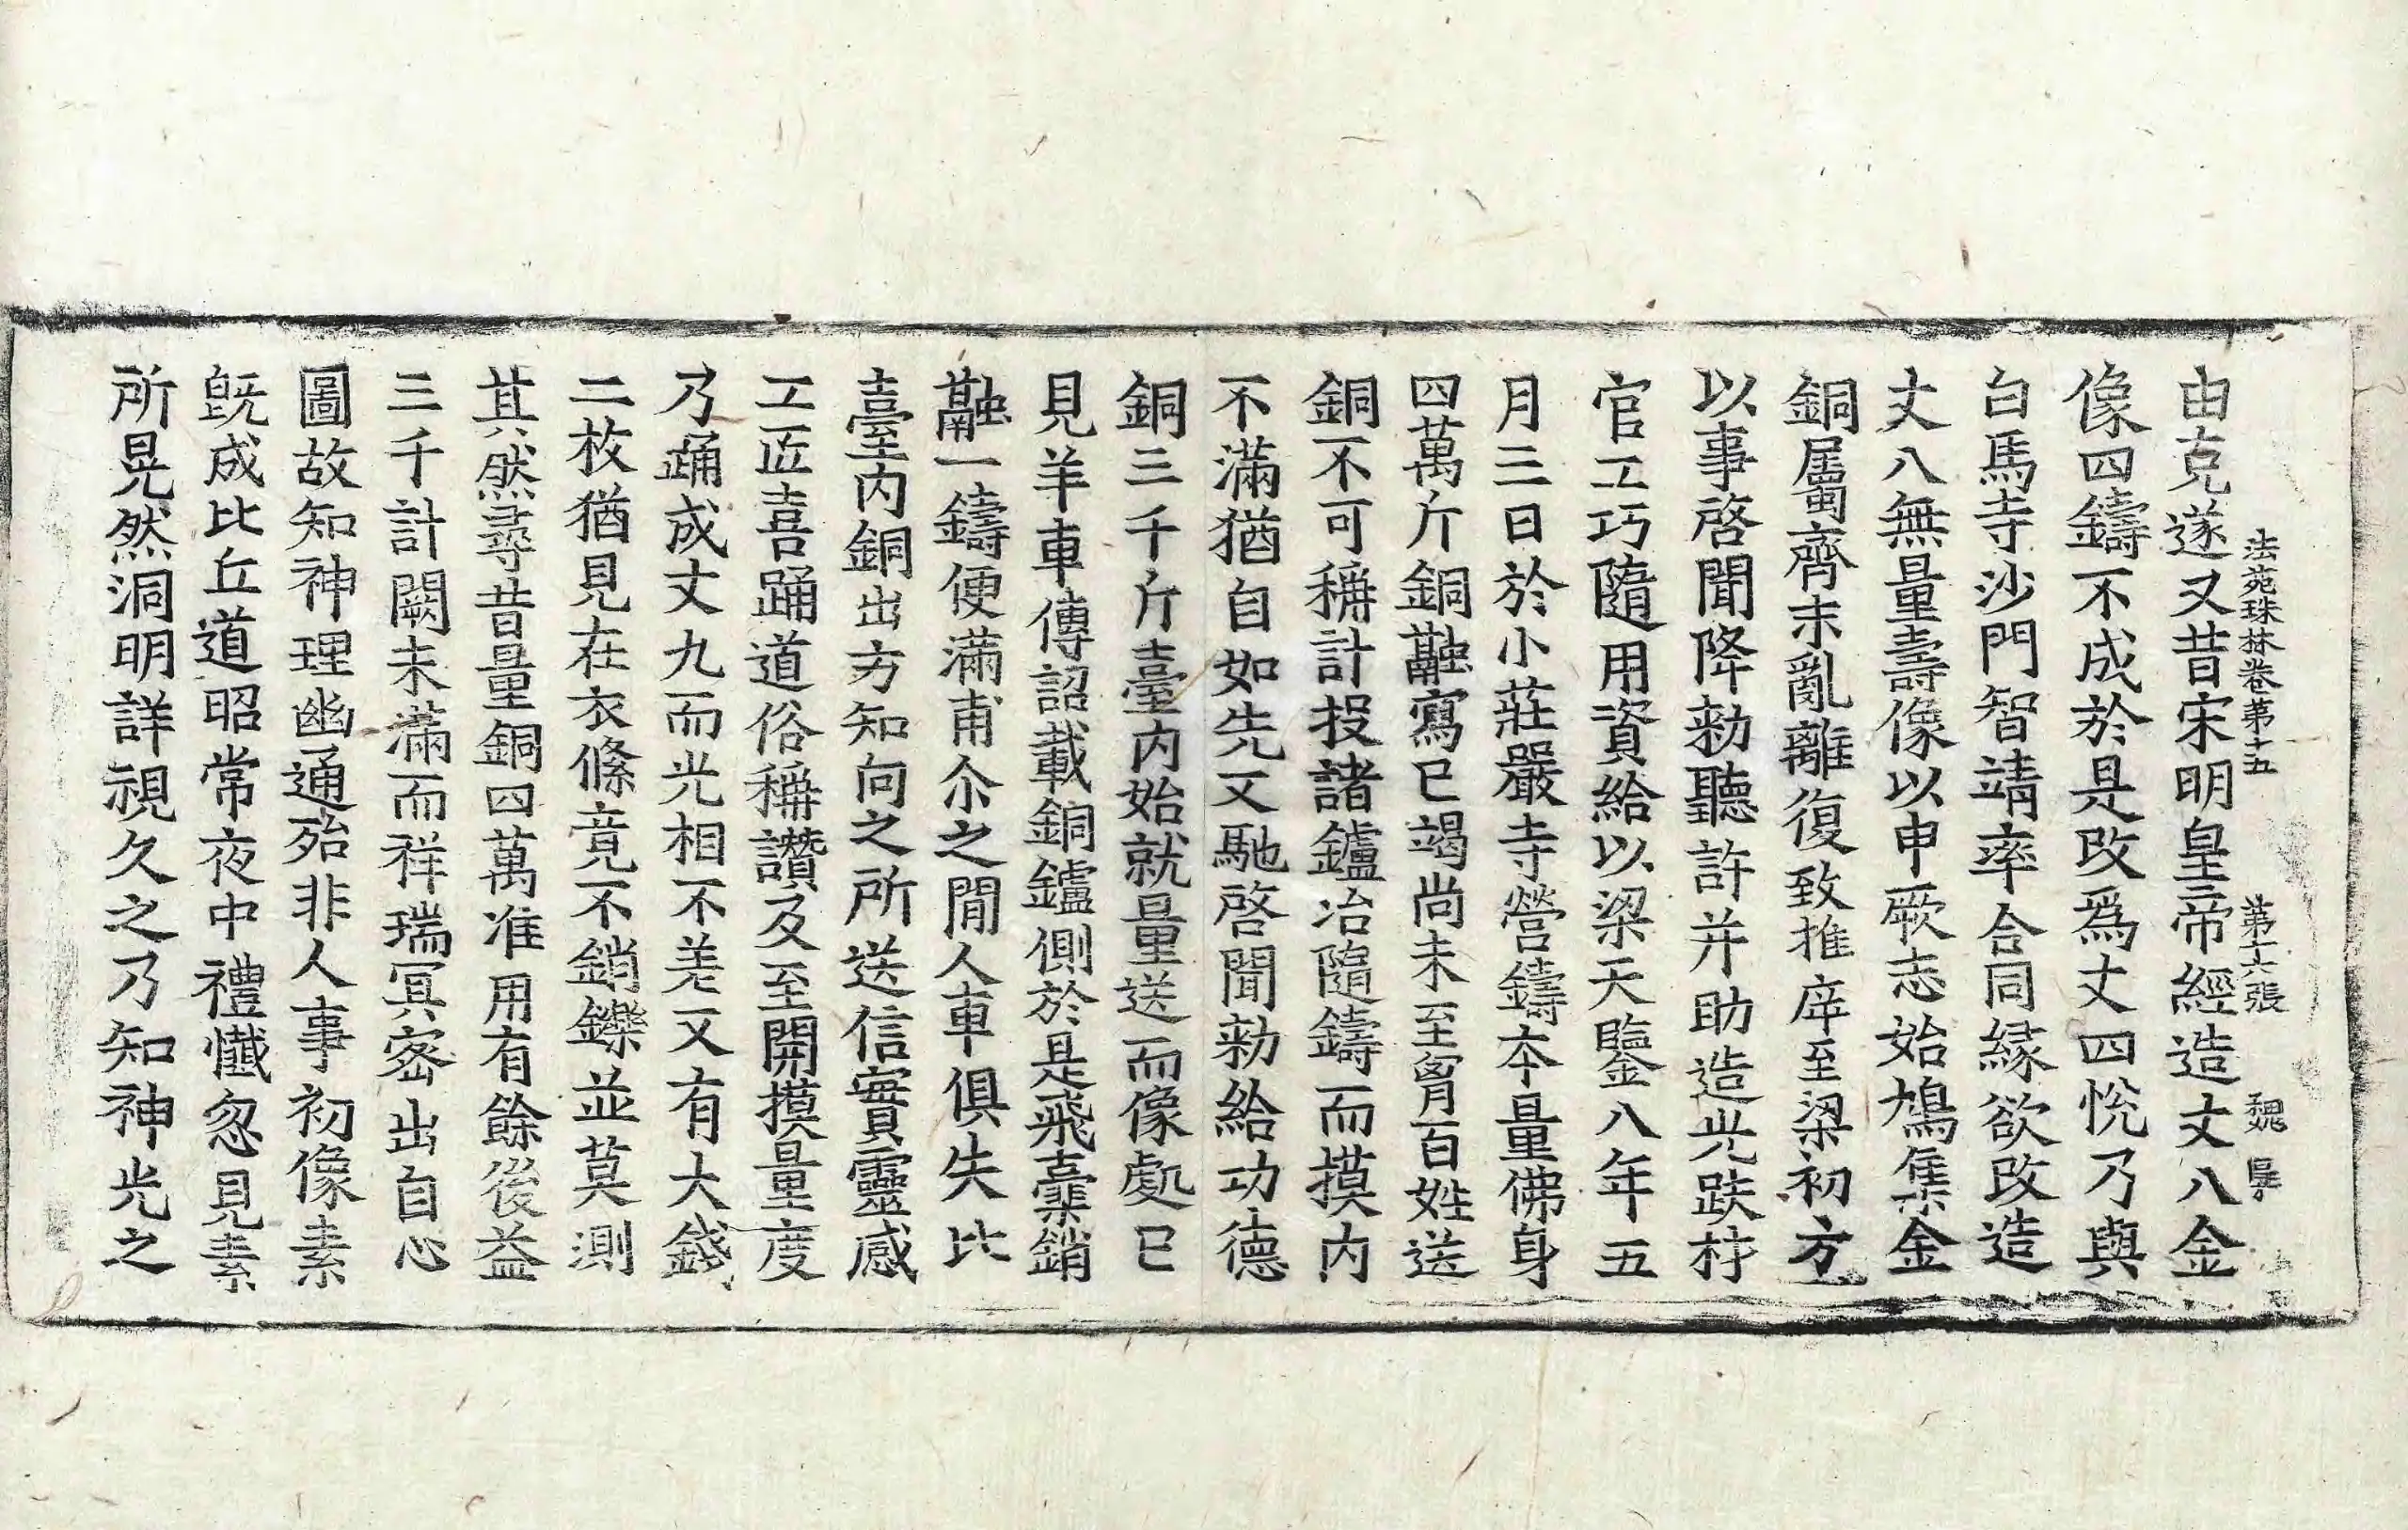 由克遂又昔宋明皇帝經造丈八金
法苑珠林卷第十五 第十六張 魏
像四鑄不成於是改爲丈四悅乃與
白馬寺沙門智靖率合同緣欲改造
丈八無量壽像以申厥志始鳩集金
銅屬齊末亂離復致推斥至梁初方
以事啓聞降勑聽許并助造光趺材
官工巧隨用資給以梁天鑒八年五
月三日於小莊嚴寺營鑄本量佛身
四萬斤銅融寫已竭尚未至胷百姓送
銅不可稱計投諸鑪冶隨鑄而摸內
不滿猶自如先又馳啓聞勑給功德
銅三千斤臺內始就量送而像處已
見羊車傳詔載銅鑪側於是飛橐銷
融一鑄便滿甫尒之閒人車俱失比
臺內銅出方知向之所送信實靈感
工匠喜踊道俗稱讚及至開摸量度
乃踊成丈九而光相不差又有大錢
二枚猶見在衣條竟不銷鑠並莫測
其然尋昔量銅四萬准用有餘後益
三千計闕未滿而祥瑞冥密出自心
圖故知神理幽通殆非人事初像素
旣成比丘道昭常夜中禮懺忽見素
所晃然洞明詳視久之乃知神光之